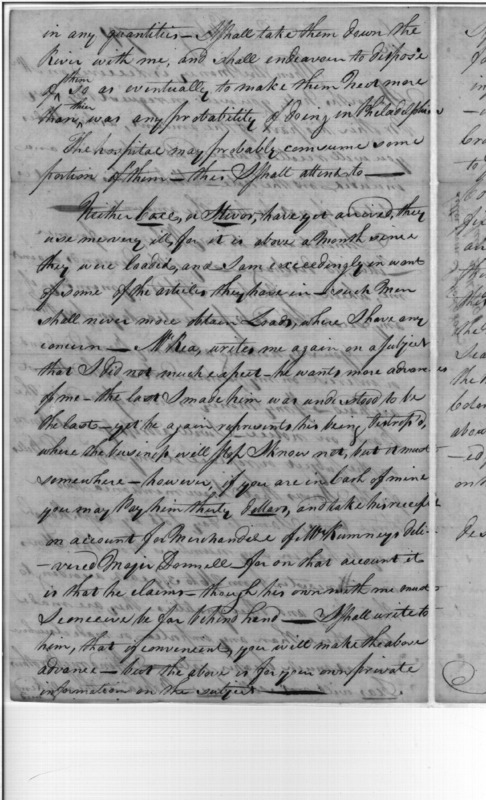 in any quantities — I shall take them down the
River with me, and shall endeavour to dispose
of them so as eventually to make them Neet more
than then was any probability of doing in Philadelphia
The hospital may probably consume some
portion of them — this I shall attend to —
Neither Case, or Stivor, have yet arrived, they
use me very ill, for it is above a Month since
they were loaded, and I am exceedingly in want
of some of the articles they have in — such Men
shall never more obtain Loads, where I have any
concern — Mr Rea, writes me again on a subject
that I did not much expect — he wants more advances
of me — the last I made him was understood to be
the last — yet he again represents his being distress'd,
where the business will stop I know not, but it must
somewhere — however, if you are in Cash of mine
you may Pay him thirty Dollars, and take his receipt
on account for Merchandize of Mr Rumneys deli-
-vered Major Donnell — for on that account it
is that he claims — though his own with me must
I conceive be far behind hand — I shall write to
him, that if convenient, you will make the above
advance — but the above is for your own private
information on the subject —